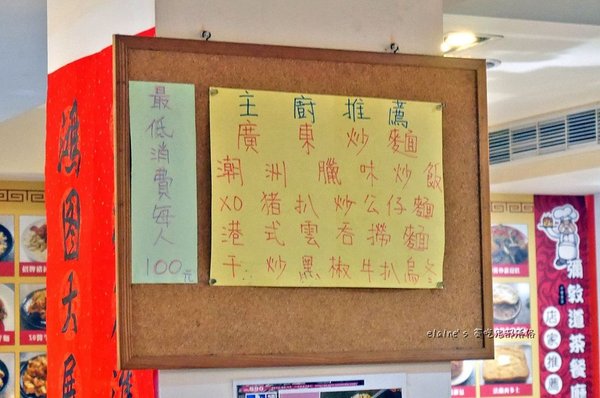 鴻图大展
最低消費每人
100元
主廚推薦
廣東炒麵
潮洲臘味炒飯
XO豬扒炒公仔麵
港式雲吞撈麵
干炒黑椒牛扒烏冬
彌敦道茶餐廳
店家推薦